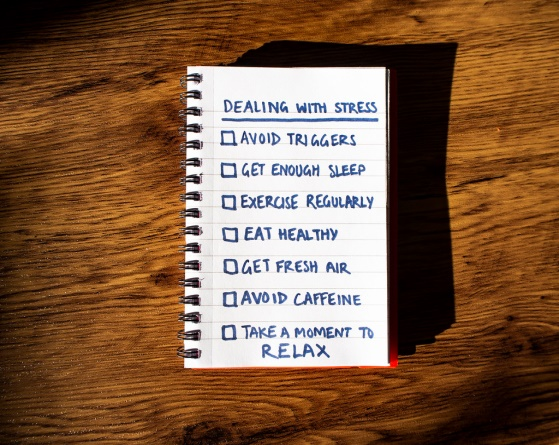 DEALING WITH STRESS
AVOID TRIGGERS
GET ENOUGH SLEEP
EXERCISE REGULARLY
EAT HEALTHY
GET FRESH AIR
AVOID CAFFEINE
TAKE A MOMENT TO
RELAX